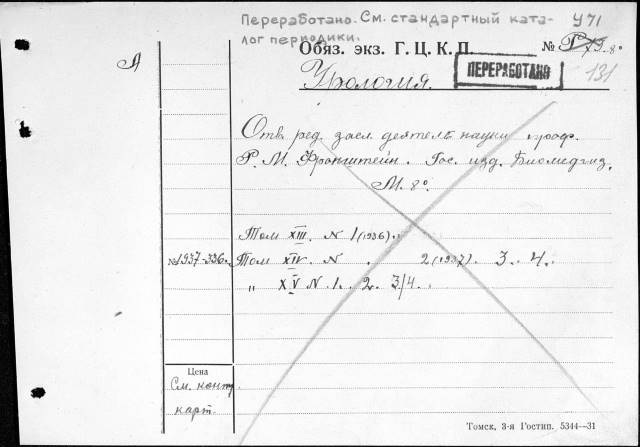 Переработано. См. стандартный ката-
лог периодики.
У71
Обяз. экз. Г. Ц. К. П.
№
ПЕРЕРАБОТАНО
131
А
Урология.
Отв. ред. засл. деятель науки проф.
Р. М. Фронштейн. Гос. изд. Биомедгиз.
М. 8°.
Том XIII. N 1 (1936).
№1937-336. Том XIV. N . 2 (1937). 3. 4.
" XV N. 1. 2. 3/4.
Цена
См. конт.
карт.
Томск, 3-я Гостип. 5344—31